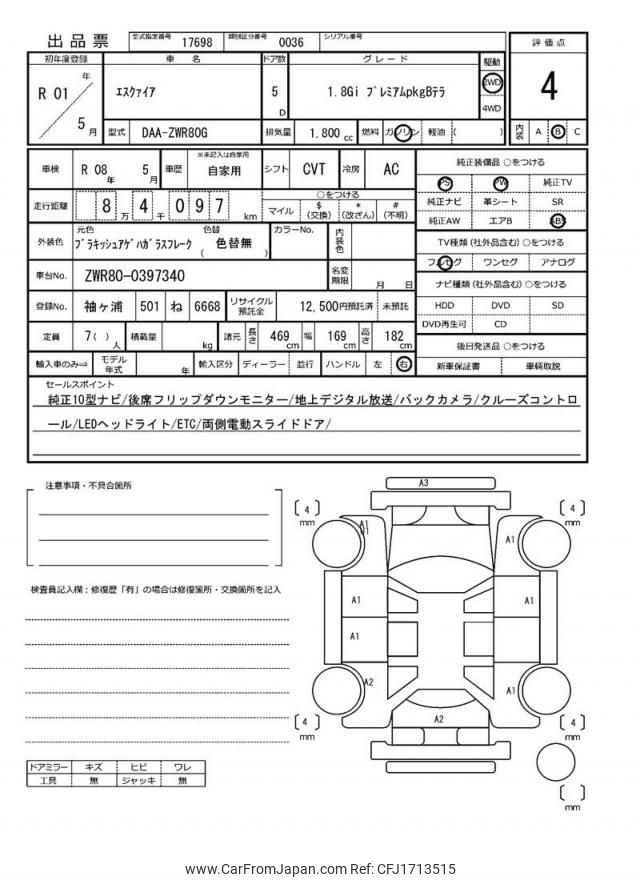 出品票 型式指定番号 17698 類別区分番号 0036 シリアル番号
初年度登録 車 名 ドア数 グレード 駆動
R 01 年 5 月 ｴｽｸｧｲｱ 5 D 1.8Gi ﾌﾟﾚﾐｱﾑpkgBﾃﾗ 2WD 4WD
型式 DAA-ZWR80G 排気量 1,800 cc 燃料 ガソリン 軽油 ( )
評価点
4
内装 A B C
車検 R 08 年 5 月 車歴 ※未記入は自家用 自家用 シフト CVT 冷房 AC
走行距離 8 万 4 千 0 9 7 km ○をつける
マイル $ (交換) * (改ざん) # (不明)
外装色 元色 ﾌﾞﾗｷｯｼｭｱｹﾞﾊｶﾞﾗｽﾌﾚｰｸ 色替 ( 色替無 ) カラーNo. 内装色
車台No. ZWR80-0397340 名変期限 月 日
登録No. 袖ヶ浦 501 ね 6668 リサイクル預託金 12,500円預託済 未預託
定員 7( ) 人 積載量 kg 諸元 長さ 469 cm 幅 169 cm 高さ 182 cm
輸入車のみ⇒ モデル年式 年 輸入区分 ディーラー 並行 ハンドル 左 右
純正装備品 ○をつける
PS PW 純正TV
純正ナビ 革シート SR
純正AW エアB ABS
TV種類 (社外品含む) ○をつける
フルセグ ワンセグ アナログ
ナビ種類 (社外品含む) ○をつける
HDD DVD SD
DVD再生可 CD
後日発送品 ○をつける
新車保証書 車輌取説
セールスポイント
純正10型ナビ/後席フリップダウンモニター/地上デジタル放送/バックカメラ/クルーズコントロ
ール/LEDヘッドライト/ETC/両側電動スライドドア/
注意事項・不具合箇所
検査員記入欄：修復歴「有」の場合は修復箇所・交換箇所を記入
ドアミラー キズ ヒビ ワレ
工具 無 ジャッキ 無
A3
4 mm
4 mm
A1
A1
A1
A1
A1
A2
A1
A2
4 mm
4 mm
mm
www.CarFromJapan.com Ref: CFJ1713515